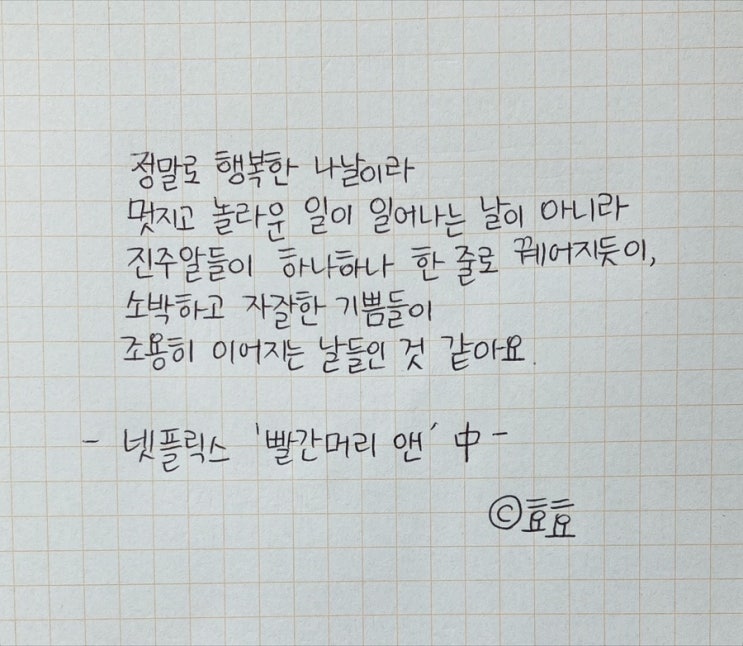 정말로 행복한 나날이라
멋지고 놀라운 일이 일어나는 날이 아니라
진주알들이 하나하나 한 줄로 꿰어지듯이,
소박하고 자잘한 기쁨들이
조용히 이어지는 날들인 것 같아요.
- 넷플릭스 '빨간머리 앤' 中 -
ⓒ효효